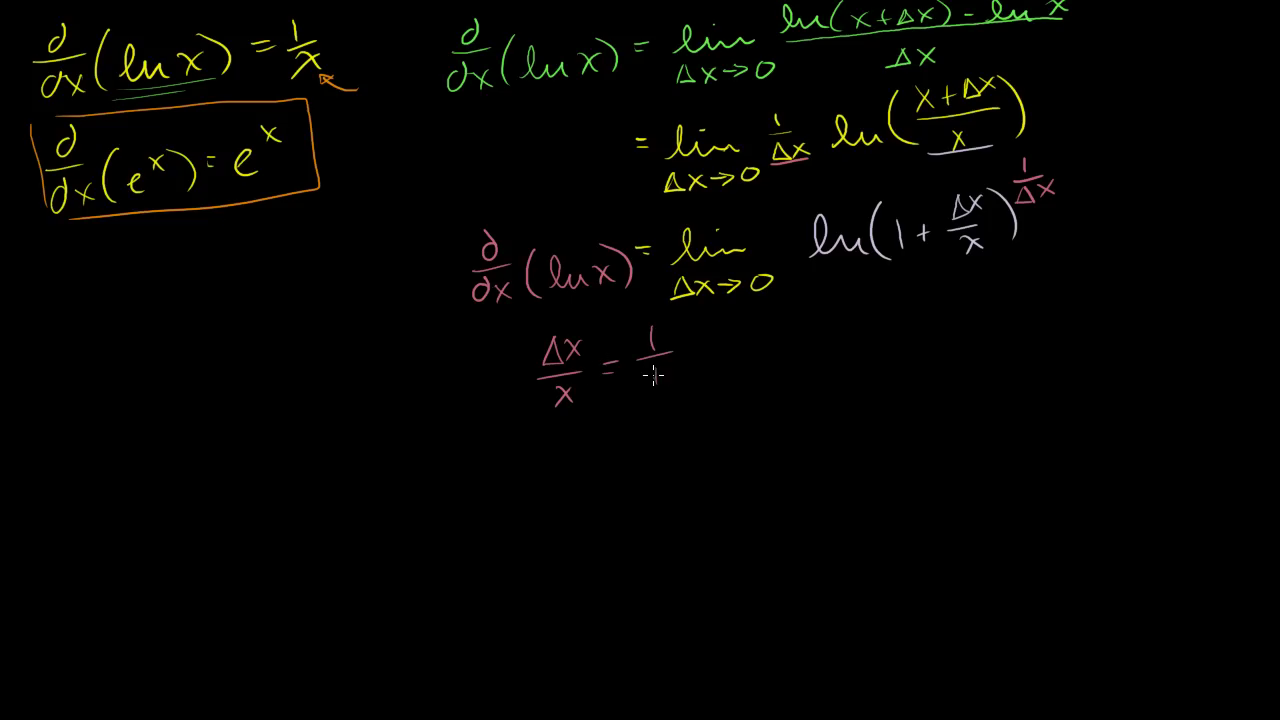 d/dx (ln x) = 1/x
d/dx (e^x) = e^x
d/dx (ln x) = lim Δx→0 (ln(x+Δx) - ln x)/Δx
= lim Δx→0 1/Δx ln((x+Δx)/x)
d/dx (ln x) = lim Δx→0 ln(1 + Δx/x)^(1/Δx)
Δx/x = 1/